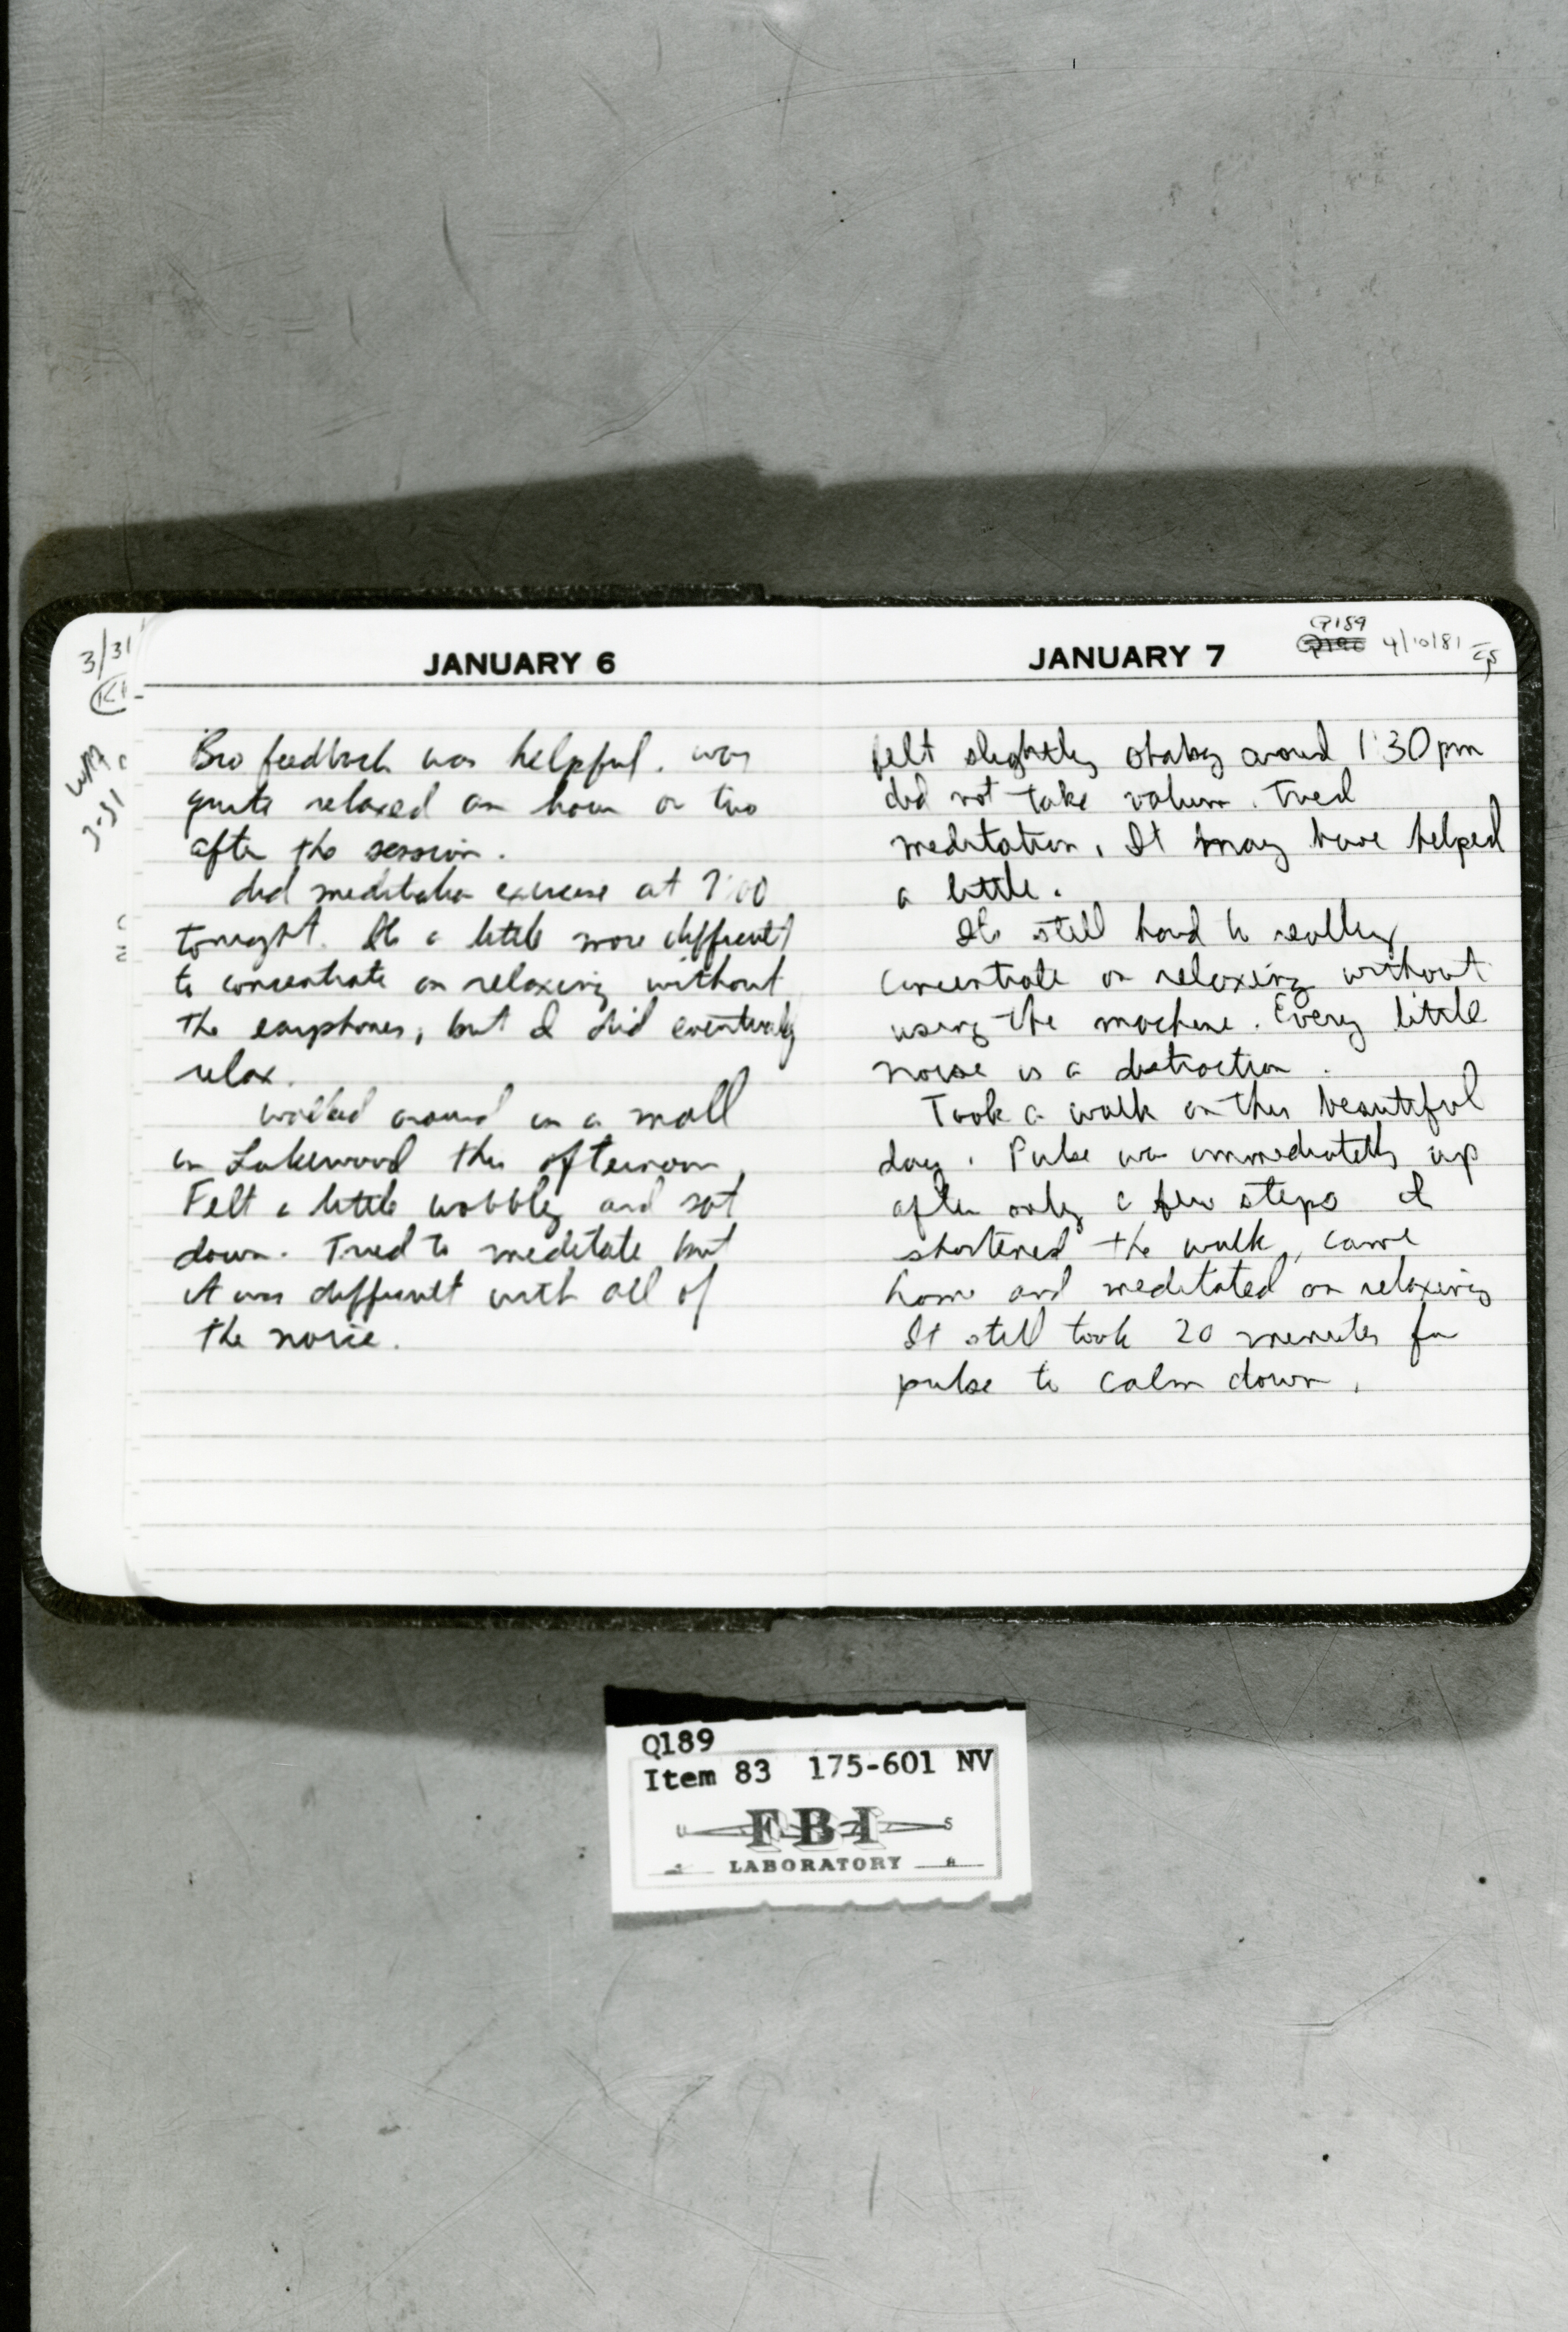 3/31
JANUARY 6
WM
3-31
Bio feedback was helpful. was
quite relaxed an hour or two
after the session.
did meditation exercise at 7:00
tonight. Its a little more difficult
to concentrate on relaxing without
the earphones, but I did eventualy
relax.
walked around in a mall
in Lakewood this afternoon,
Felt a little wobbly and sat
down. Tried to meditate but
it was difficult with all of
the noise.
JANUARY 7
Q189
4/10/81
felt slightly shaky around 1:30 pm
did not take valium. Tried
meditation. It may have helped
a little.
Its still hard to really
concentrate on relaxing without
using the machine. Every little
noise is a distraction.
Took a walk on this beautiful
day. Pulse was immediately up
after only a few steps I
shortened the walk, came
home and meditated on relaxing
It still took 20 minutes for
pulse to calm down.
Q189
Item 83 175-601 NV
U S
FBI
LABORATORY